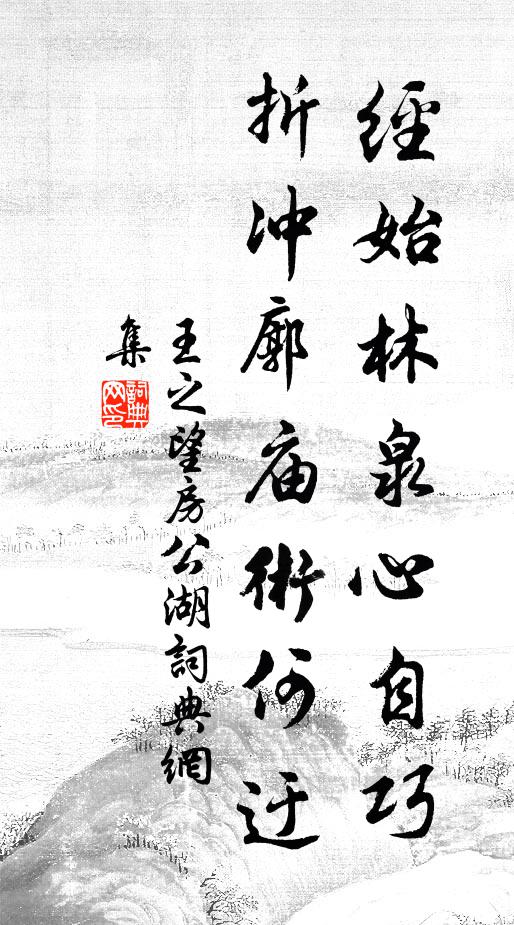 經始林泉心自巧
折冲廓庙術何迂
王之望房公湖詞典網
集
詞典
网印